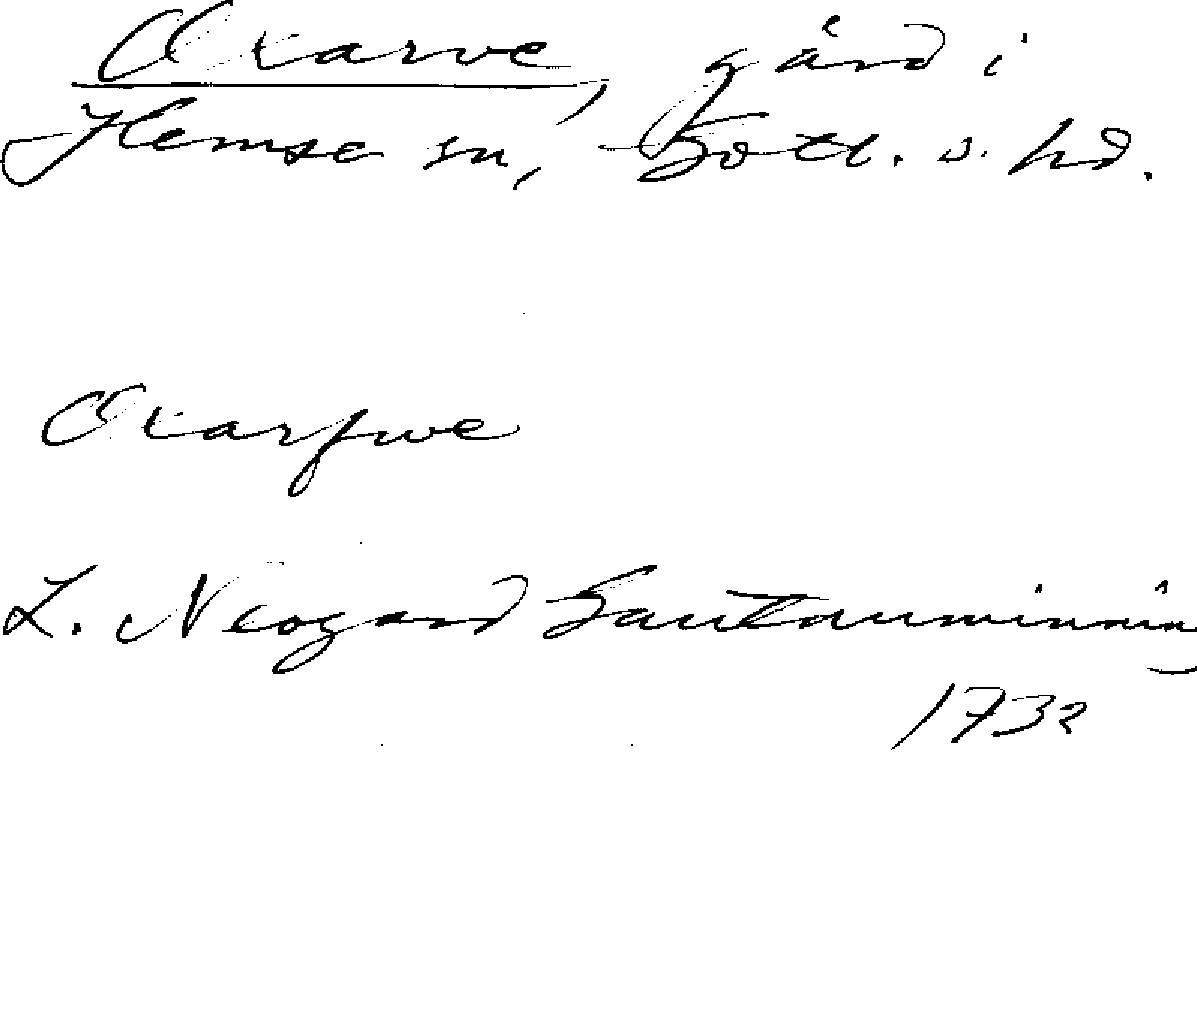 Oxarve, gård i
Hemse sn, Gotl. s. hd.
Oxarfwe
L. Neogard Gautauminning
1732